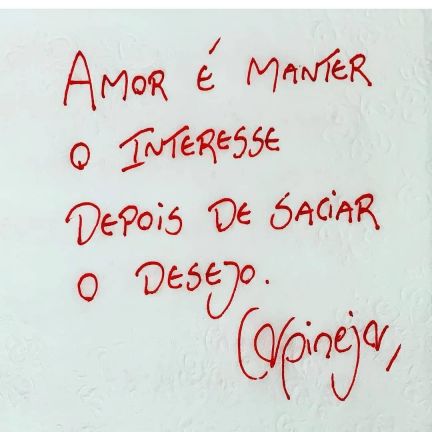 AMOR É MANTER
O INTERESSE
DEPOIS DE SACIAR
O DESEJO.
Carpinejar,